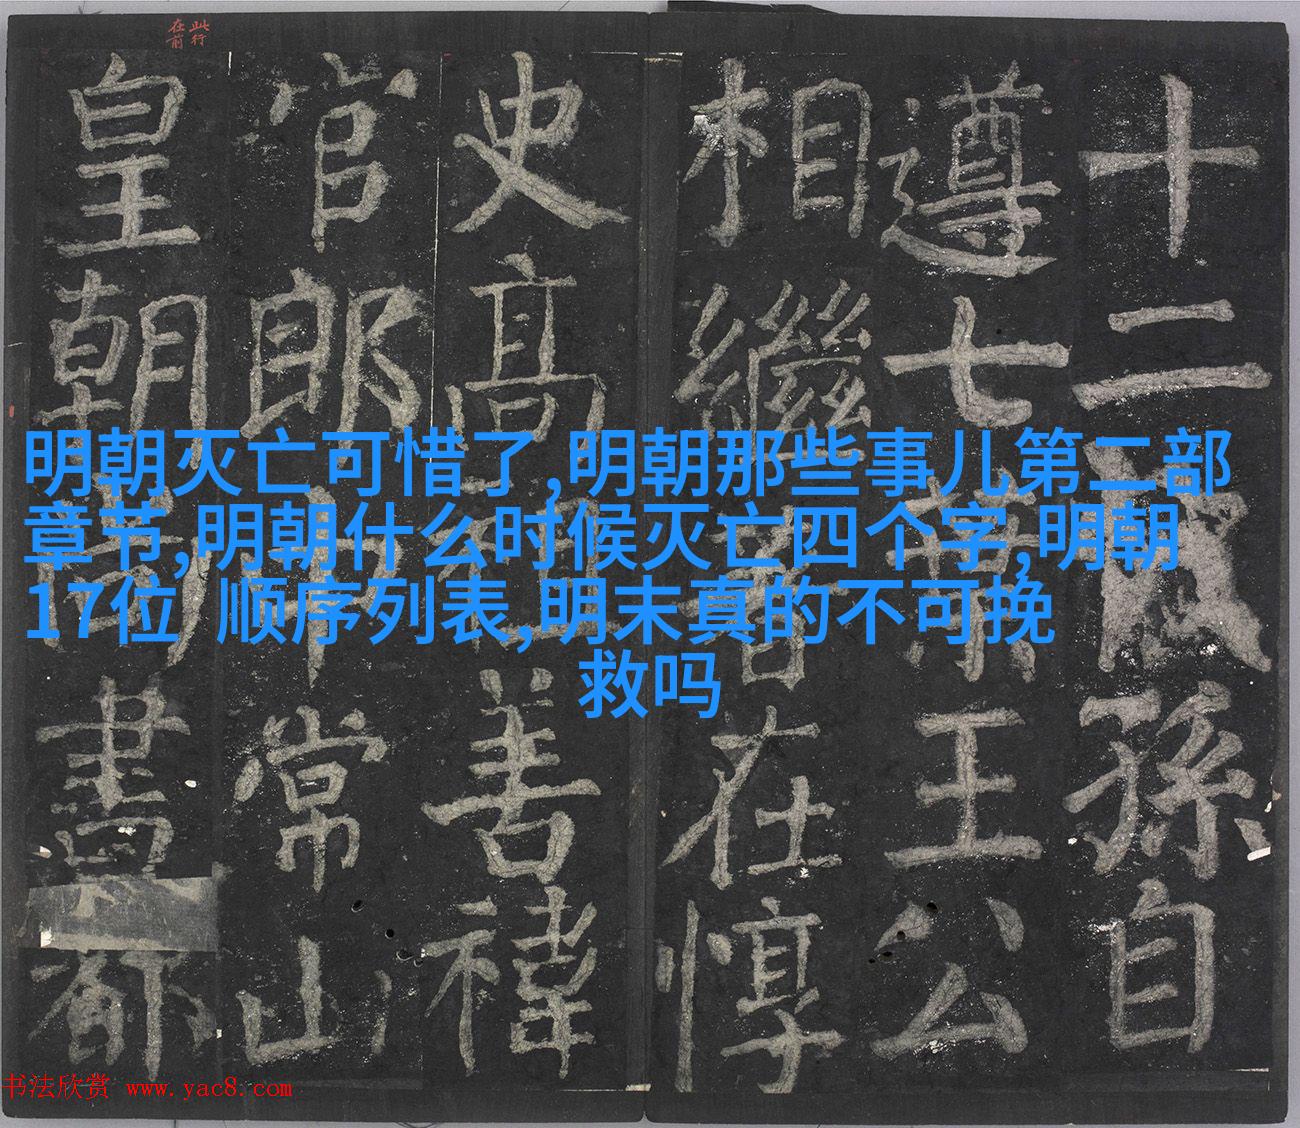 此行
在前
十二歲孫自
遵七葉王公
相繼在惇
史高祖善禕
官郎中常山
皇朝尚書都
明朝灭亡可惜了,明朝那些事儿第二部
章节,明朝什么时候灭亡四个字,明朝
17位 顺序列表,明末真的不可挽
救吗
书法欣赏 www.yac8.com